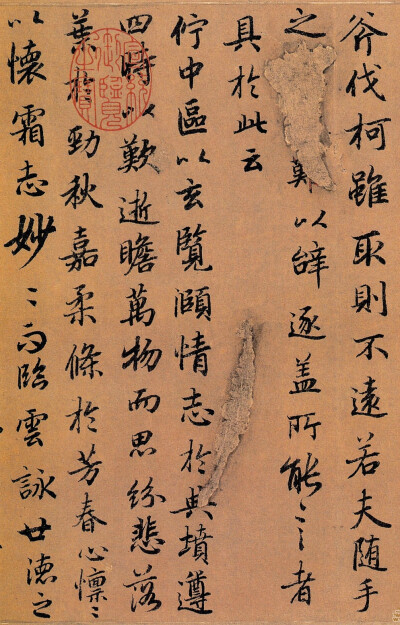 斧伐柯雖取則不遠若夫随手
之難以辭逐盖所能言者
具於此云
佇中區以玄覽頤情志於典墳遵
四時以歎逝瞻萬物而思紛悲落
葉於勁秋嘉柔條於芳春心懍〻
以懷霜志妙〻而臨雲詠世德之